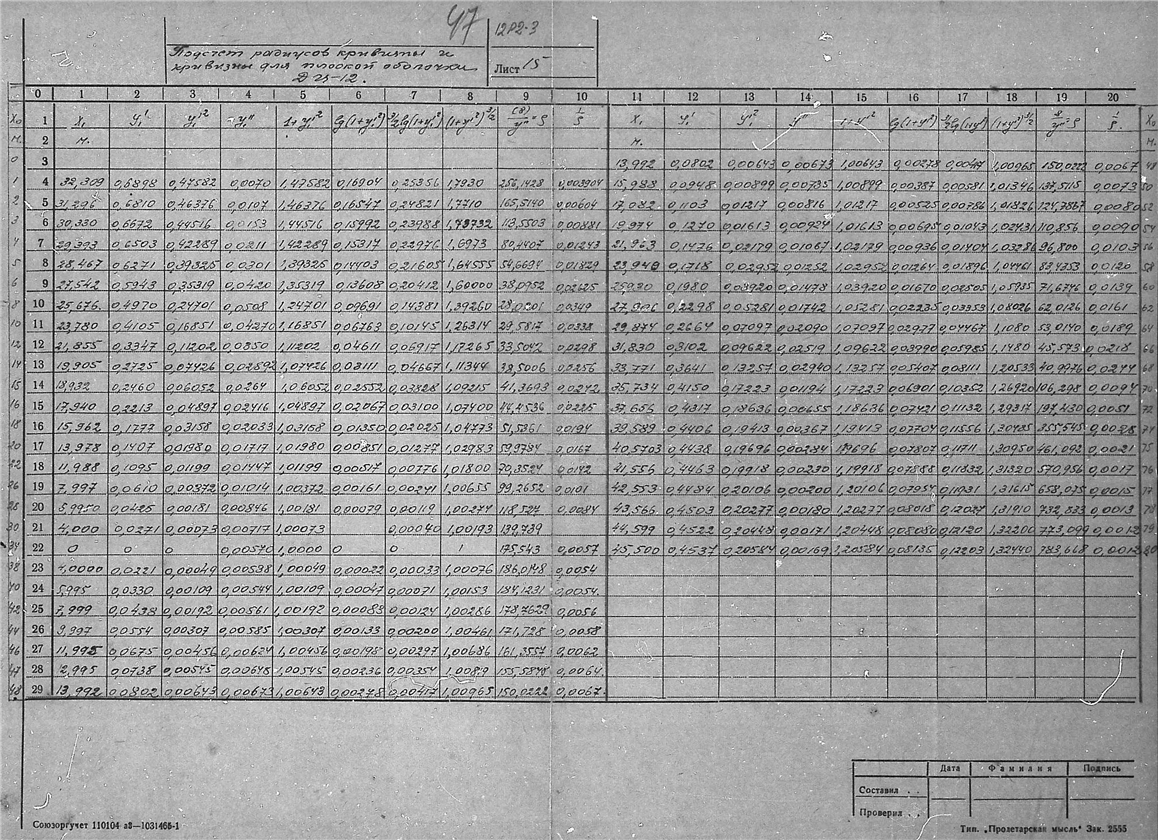 47
1282-3
Подсчет радиусов кривизны и
кривизны для плоской оболочки
ДЦ-12.
Лист 15
0 1 2 3 4 5 6 7 8 9 10 11 12 13 14 15 16 17 18 19 20
X₀ 1 X₁ y₁' y₁'² y₁'' 1+y₁'² lg(1+y₁'²) 3/2lg(1+y₁'²) (1+y₁'²)3/2 (8)/y''=ρ 1/ρ X₁ y₁' y'² y'' 1+y'² lg(1+y'²) 3/2lg(1+y'²) (1+y'²)3/2 8/y''=ρ 1/ρ X₀
м. 2 м. м. м.
0 3 13,992 0,0802 0,00643 0,00673 1,00643 0,00278 0,00417 1,00965 150,0222 0,0067 48
1 4 32,309 0,6898 0,47582 0,0070 1,47582 0,16904 0,25356 1,7930 256,1428 0,003904 15,988 0,0948 0,00899 0,00735 1,00899 0,00387 0,00581 1,01346 137,5115 0,0073 50
2 5 31,296 0,6810 0,46376 0,0107 1,46376 0,16547 0,24821 1,7710 165,5140 0,00604 17,082 0,1103 0,01217 0,00816 1,01217 0,00525 0,00786 1,01826 124,7867 0,0080 52
3 6 30,330 0,6672 0,44516 0,0153 1,44516 0,15992 0,23988 1,73732 113,5503 0,00881 19,974 0,1270 0,01613 0,00924 1,01613 0,00695 0,01043 1,02431 110,856 0,0090 54
4 7 29,393 0,6503 0,42289 0,0211 1,42289 0,15317 0,22976 1,6973 80,4407 0,01243 21,963 0,1476 0,02179 0,01067 1,02179 0,00936 0,01404 1,03286 96,800 0,0103 56
5 8 28,467 0,6271 0,39325 0,0301 1,39325 0,14403 0,21605 1,64555 54,6694 0,01829 23,949 0,1718 0,02952 0,01252 1,02952 0,01264 0,01896 1,04461 83,4353 0,0120 58
6 9 27,542 0,5943 0,35319 0,0420 1,35319 0,13608 0,20412 1,60000 38,0952 0,02625 25,930 0,1980 0,03920 0,01478 1,03920 0,01670 0,02505 1,05935 71,6746 0,0139 60
8 10 25,676 0,4970 0,24701 0,0508 1,24701 0,09691 0,14381 1,39260 0,0349 27,906 0,2298 0,05281 0,01742 1,05281 0,02235 0,03353 1,08026 62,0126 0,0161 62
10 11 23,780 0,4105 0,16851 0,04270 1,16851 0,06763 0,10145 1,26314 29,5817 0,0338 29,874 0,2664 0,07097 0,02090 1,07097 0,02977 0,04467 1,1080 53,0140 0,0189 64
12 12 21,855 0,3347 0,11202 0,0350 1,11202 0,04611 0,06917 1,17265 33,5042 0,0298 31,830 0,3102 0,09622 0,02519 1,09622 0,03990 0,05985 1,1480 45,573 0,0218 66
14 13 19,905 0,2725 0,07426 0,02892 1,07426 0,03111 0,04667 1,11344 38,5006 0,0256 33,771 0,3641 0,13257 0,02940 1,13257 0,05407 0,08111 1,20533 40,9976 0,0244 68
15 14 18,932 0,2460 0,06052 0,0264 1,06052 0,02552 0,03828 1,09215 41,3693 0,0242 35,734 0,4150 0,17223 0,01194 1,17223 0,06901 0,10352 1,26920 106,298 0,0094 70
16 15 17,940 0,2213 0,04897 0,02416 1,04897 0,02067 0,03100 1,07400 44,4536 0,0225 37,656 0,4317 0,18636 0,00655 1,18636 0,07421 0,11132 1,29317 197,430 0,0051 72
18 16 15,962 0,1777 0,03158 0,02033 1,03158 0,01350 0,02025 1,04773 51,5361 0,0194 39,589 0,4406 0,19413 0,00367 1,19413 0,07704 0,11556 1,30485 355,545 0,0028 74
20 17 13,978 0,1407 0,01980 0,01717 1,01980 0,00851 0,01277 1,02983 59,9784 0,0167 40,5703 0,4438 0,19696 0,00284 1,19696 0,07807 0,11711 1,30950 461,092 0,0021 75
22 18 11,988 0,1095 0,01199 0,01447 1,01199 0,00517 0,00776 1,01800 70,3524 0,0142 41,556 0,4463 0,19918 0,00230 1,19918 0,07888 0,11832 1,31320 570,956 0,0017 76
26 19 7,997 0,0610 0,00372 0,01014 1,00372 0,00161 0,00241 1,00655 99,2652 0,0101 42,553 0,4484 0,20106 0,00200 1,20106 0,07954 0,11931 1,31615 658,075 0,0015 77
28 20 5,9950 0,0425 0,00181 0,00846 1,00181 0,00079 0,00119 1,00274 118,524 0,0084 43,566 0,4503 0,20277 0,00180 1,20277 0,08018 0,12027 1,31910 732,833 0,0013 78
30 21 4,000 0,0271 0,00073 0,00717 1,00073 0,00040 1,00193 139,739 44,599 0,4522 0,20448 0,00171 1,20448 0,08080 0,12120 1,32200 773,099 0,0012 79
34 22 0 0 0 0,00570 1,0000 0 0 1 175,543 0,0057 45,500 0,4537 0,20584 0,00169 1,20584 0,08135 0,12203 1,32440 783,668 0,0012 80
38 23 4,0000 0,0221 0,00049 0,00538 1,00049 0,00022 0,00033 1,00076 186,0148 0,0054
40 24 5,995 0,0330 0,00109 0,00544 1,00109 0,00047 0,00071 1,00153 184,1231 0,0054
42 25 7,999 0,0438 0,00192 0,00561 1,00192 0,00083 0,00124 1,00286 178,7629 0,0056
44 26 9,997 0,0554 0,00307 0,00585 1,00307 0,00133 0,00200 1,00461 171,728 0,0058
46 27 11,995 0,0675 0,00456 0,00624 1,00456 0,00198 0,00297 1,00686 161,3557 0,0062
47 28 2,995 0,0738 0,00545 0,00648 1,00545 0,00236 0,00354 1,0089 155,5848 0,0064
48 29 13,992 0,0802 0,00643 0,00673 1,00643 0,00278 0,00417 1,00965 150,0222 0,0067
Дата Фамилия Подпись
Составил . .
Проверил . .
Союзоргучет 110104 аВ—1031468-1
Тип. „Пролетарская мысль" Зак. 2555